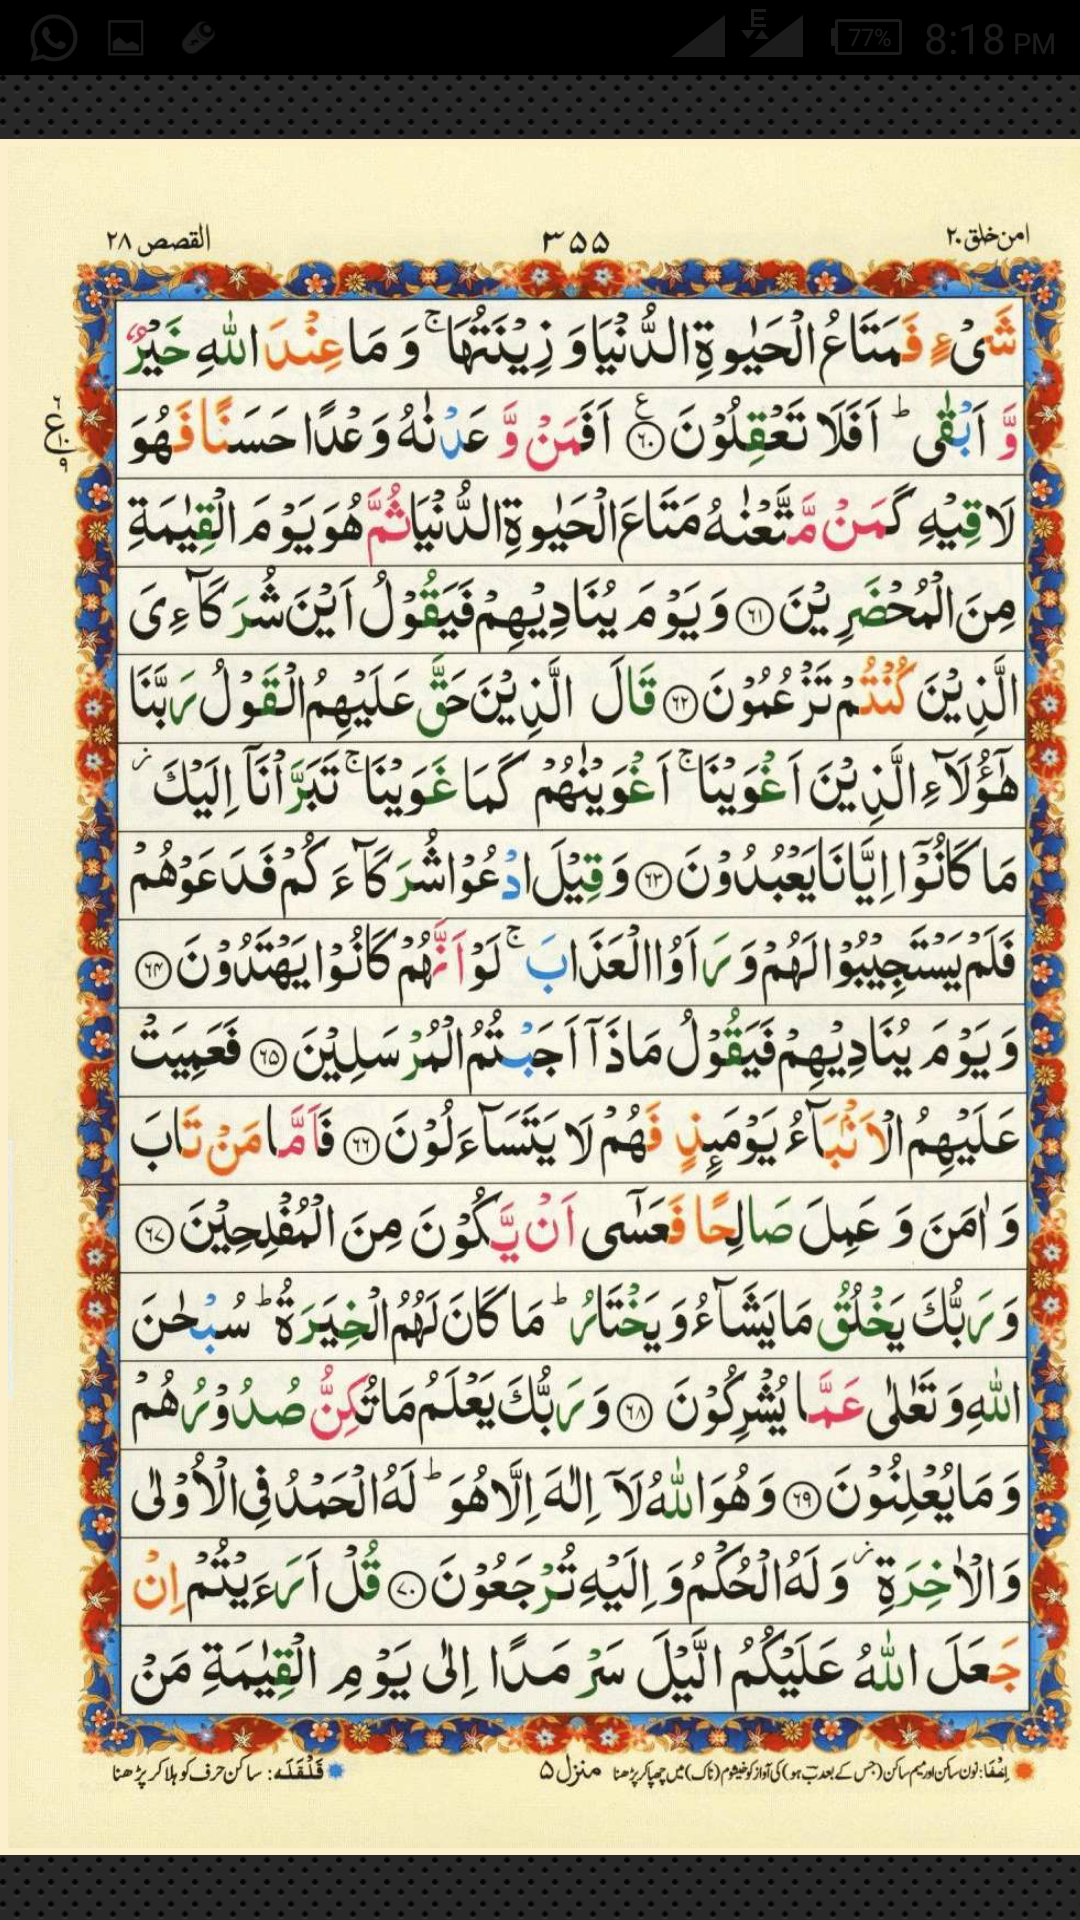 E
77%
8:18 PM
القصص ٢٨
٣۵۵
امن خلق ٢٠
شَیْءٍ فَمَتَاعُ الْحَیٰوةِ الدُّنْیَا وَ زِیْنَتُهَا ۚ وَ مَا عِنْدَ اللّٰهِ خَیْرٌ
وَّ اَبْقٰی ؕ اَفَلَا تَعْقِلُوْنَ ﴿۶۰﴾ اَفَمَنْ وَّ عَدْنٰهُ وَعْدًا حَسَنًا فَهُوَ
لَاقِیْهِ كَمَنْ مَّتَّعْنٰهُ مَتَاعَ الْحَیٰوةِ الدُّنْیَا ثُمَّ هُوَ یَوْمَ الْقِیٰمَةِ
مِنَ الْمُحْضَرِیْنَ ﴿۶۱﴾ وَ یَوْمَ یُنَادِیْهِمْ فَیَقُوْلُ اَیْنَ شُرَكَآءِیَ
الَّذِیْنَ كُنْتُمْ تَزْعُمُوْنَ ﴿۶۲﴾ قَالَ الَّذِیْنَ حَقَّ عَلَیْهِمُ الْقَوْلُ رَبَّنَا
هٰۤؤُلَآءِ الَّذِیْنَ اَغْوَیْنَا ۚ اَغْوَیْنٰهُمْ كَمَا غَوَیْنَا ۚ تَبَرَّاْنَاۤ اِلَیْكَ ؗ
مَا كَانُوْۤا اِیَّانَا یَعْبُدُوْنَ ﴿۶۳﴾ وَ قِیْلَ ادْعُوْا شُرَكَآءَكُمْ فَدَعَوْهُمْ
فَلَمْ یَسْتَجِیْبُوْا لَهُمْ وَ رَاَوُا الْعَذَابَ ۚ لَوْ اَنَّهُمْ كَانُوْا یَهْتَدُوْنَ ﴿۶۴﴾
وَ یَوْمَ یُنَادِیْهِمْ فَیَقُوْلُ مَاذَاۤ اَجَبْتُمُ الْمُرْسَلِیْنَ ﴿۶۵﴾ فَعَمِیَتْ
عَلَیْهِمُ الْاَنْۢبَآءُ یَوْمَىِٕذٍ فَهُمْ لَا یَتَسَآءَلُوْنَ ﴿۶۶﴾ فَاَمَّا مَنْ تَابَ
وَ اٰمَنَ وَ عَمِلَ صَالِحًا فَعَسٰۤی اَنْ یَّكُوْنَ مِنَ الْمُفْلِحِیْنَ ﴿۶۷﴾
وَ رَبُّكَ یَخْلُقُ مَا یَشَآءُ وَ یَخْتَارُ ؕ مَا كَانَ لَهُمُ الْخِیَرَةُ ؕ سُبْحٰنَ
اللّٰهِ وَ تَعٰلٰی عَمَّا یُشْرِكُوْنَ ﴿۶۸﴾ وَ رَبُّكَ یَعْلَمُ مَا تُكِنُّ صُدُوْرُهُمْ
وَ مَا یُعْلِنُوْنَ ﴿۶۹﴾ وَ هُوَ اللّٰهُ لَاۤ اِلٰهَ اِلَّا هُوَ ؕ لَهُ الْحَمْدُ فِی الْاُوْلٰی
وَ الْاٰخِرَةِ ؗ وَ لَهُ الْحُكْمُ وَ اِلَیْهِ تُرْجَعُوْنَ ﴿۷۰﴾ قُلْ اَرَءَیْتُمْ اِنْ
جَعَلَ اللّٰهُ عَلَیْكُمُ الَّیْلَ سَرْمَدًا اِلٰی یَوْمِ الْقِیٰمَةِ مَنْ
ع
اِخْفَا: نون ساکن اور میم ساکن (جس کے بعد ب ہو) کی آواز کو خیشوم (ناک) میں چھپا کر پڑھنا
منزل ۵
قَلْقَلَہ: ساکن حرف کو ہلا کر پڑھنا